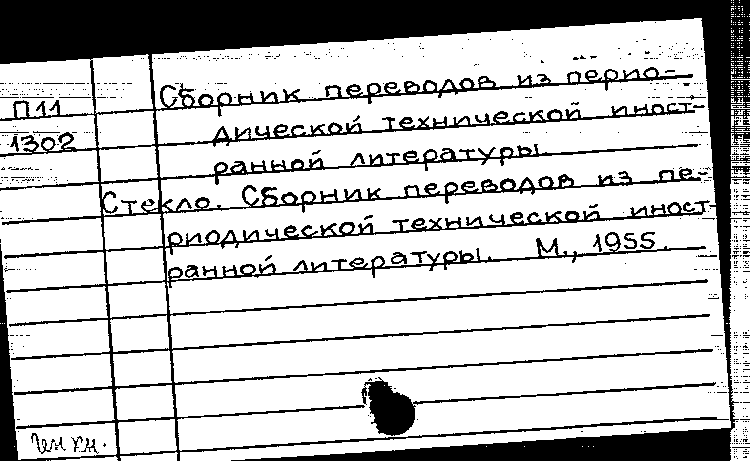 Сборник переводов из перио-
П11
дической технической иност-
1302
ранной литературы.
Стекло. Сборник переводов из пе-
риодической технической иност-
ранной литературы. М., 1955.